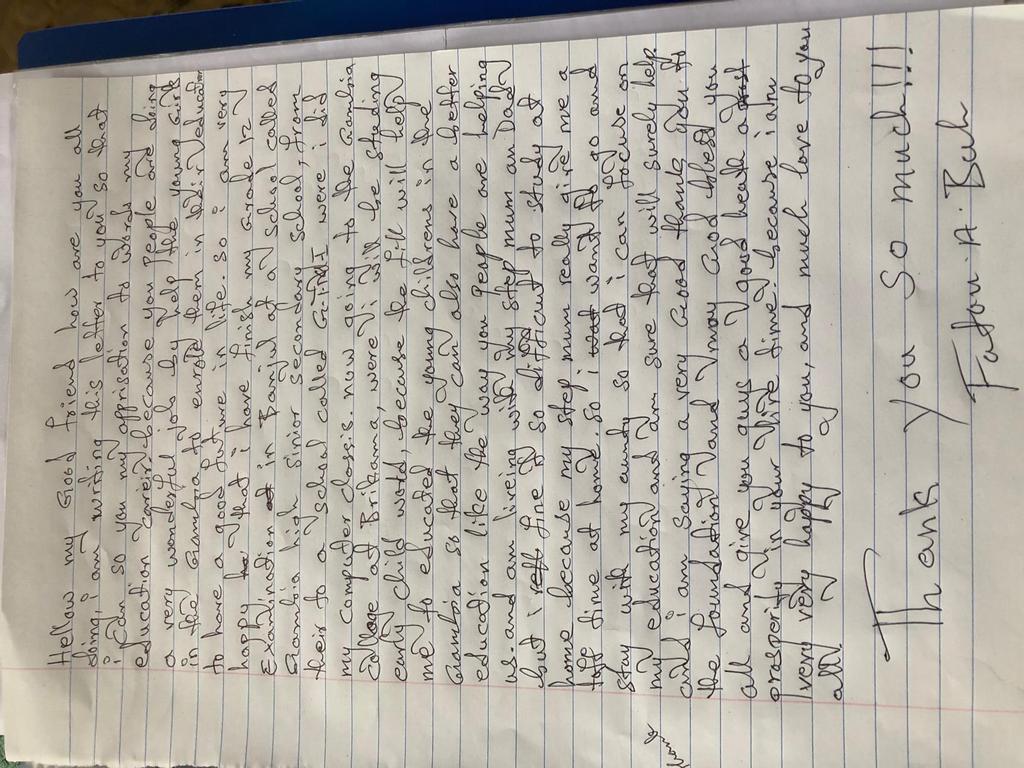 Hellow my Good friend how are you all
doing, i am writing this letter to you so that
i can so you my apprisation to words my
education carier. because you people are doing
a very wonderful job by help the young Girls
in the Gambia to enrold them in their education
to have a good future in life. so i am very
happy that i have finish my Grade 12
Examination in Banjul at a School called
Gambia high Sinior Secondary School, from
their to a School called G.T.M.I were i did
my computer classis. now going to the Gambia
College at Brikama, were i will be studing
early child wold, because the fill will help
me to educated the young childrens in the
Gambia so that they can also have a better
education like the way you people are helping
us. and am liveing with my step mum and Dad
but i fine it so difficult to study at
home because my step mum really give me a
toff time at home. so i want to go and
stay with my aunty so that i can focuse on
my education and am sure that will surely help
and i am saying a very Good thank you to
the foundation and may God blessed you
all and give you guys a good healt and
prosperity in your life time. because i am
very very happy to you, and much love to you
all
Thank you so much!!!
Fatou. A. Bah